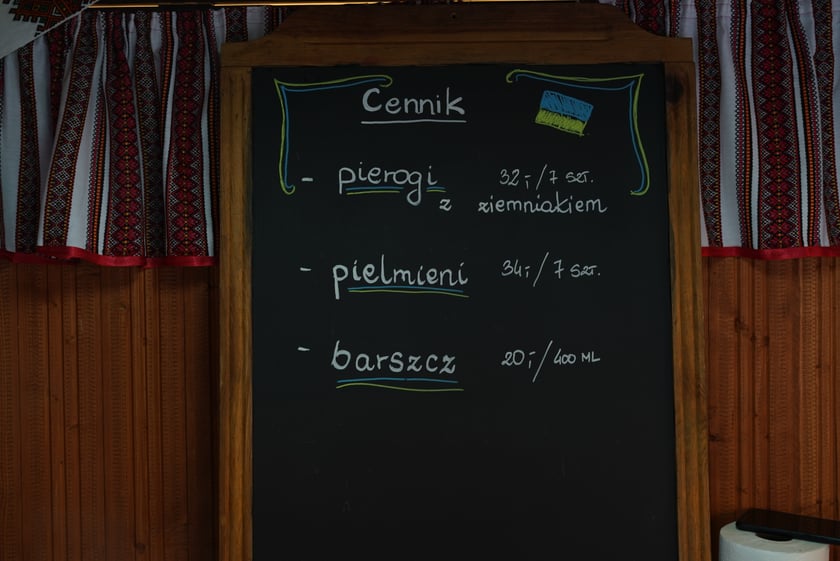 Cennik
- pierogi 32,-/7 szt.
z ziemniakiem
- pielmieni 34,-/7 szt.
- barszcz 20,-/400 ML